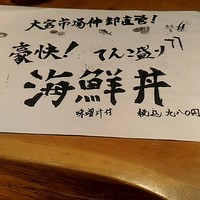 大宮市場仲卸直営!
豪快! てんこ盛り
海鮮丼
味噌汁付 税込 九八〇円